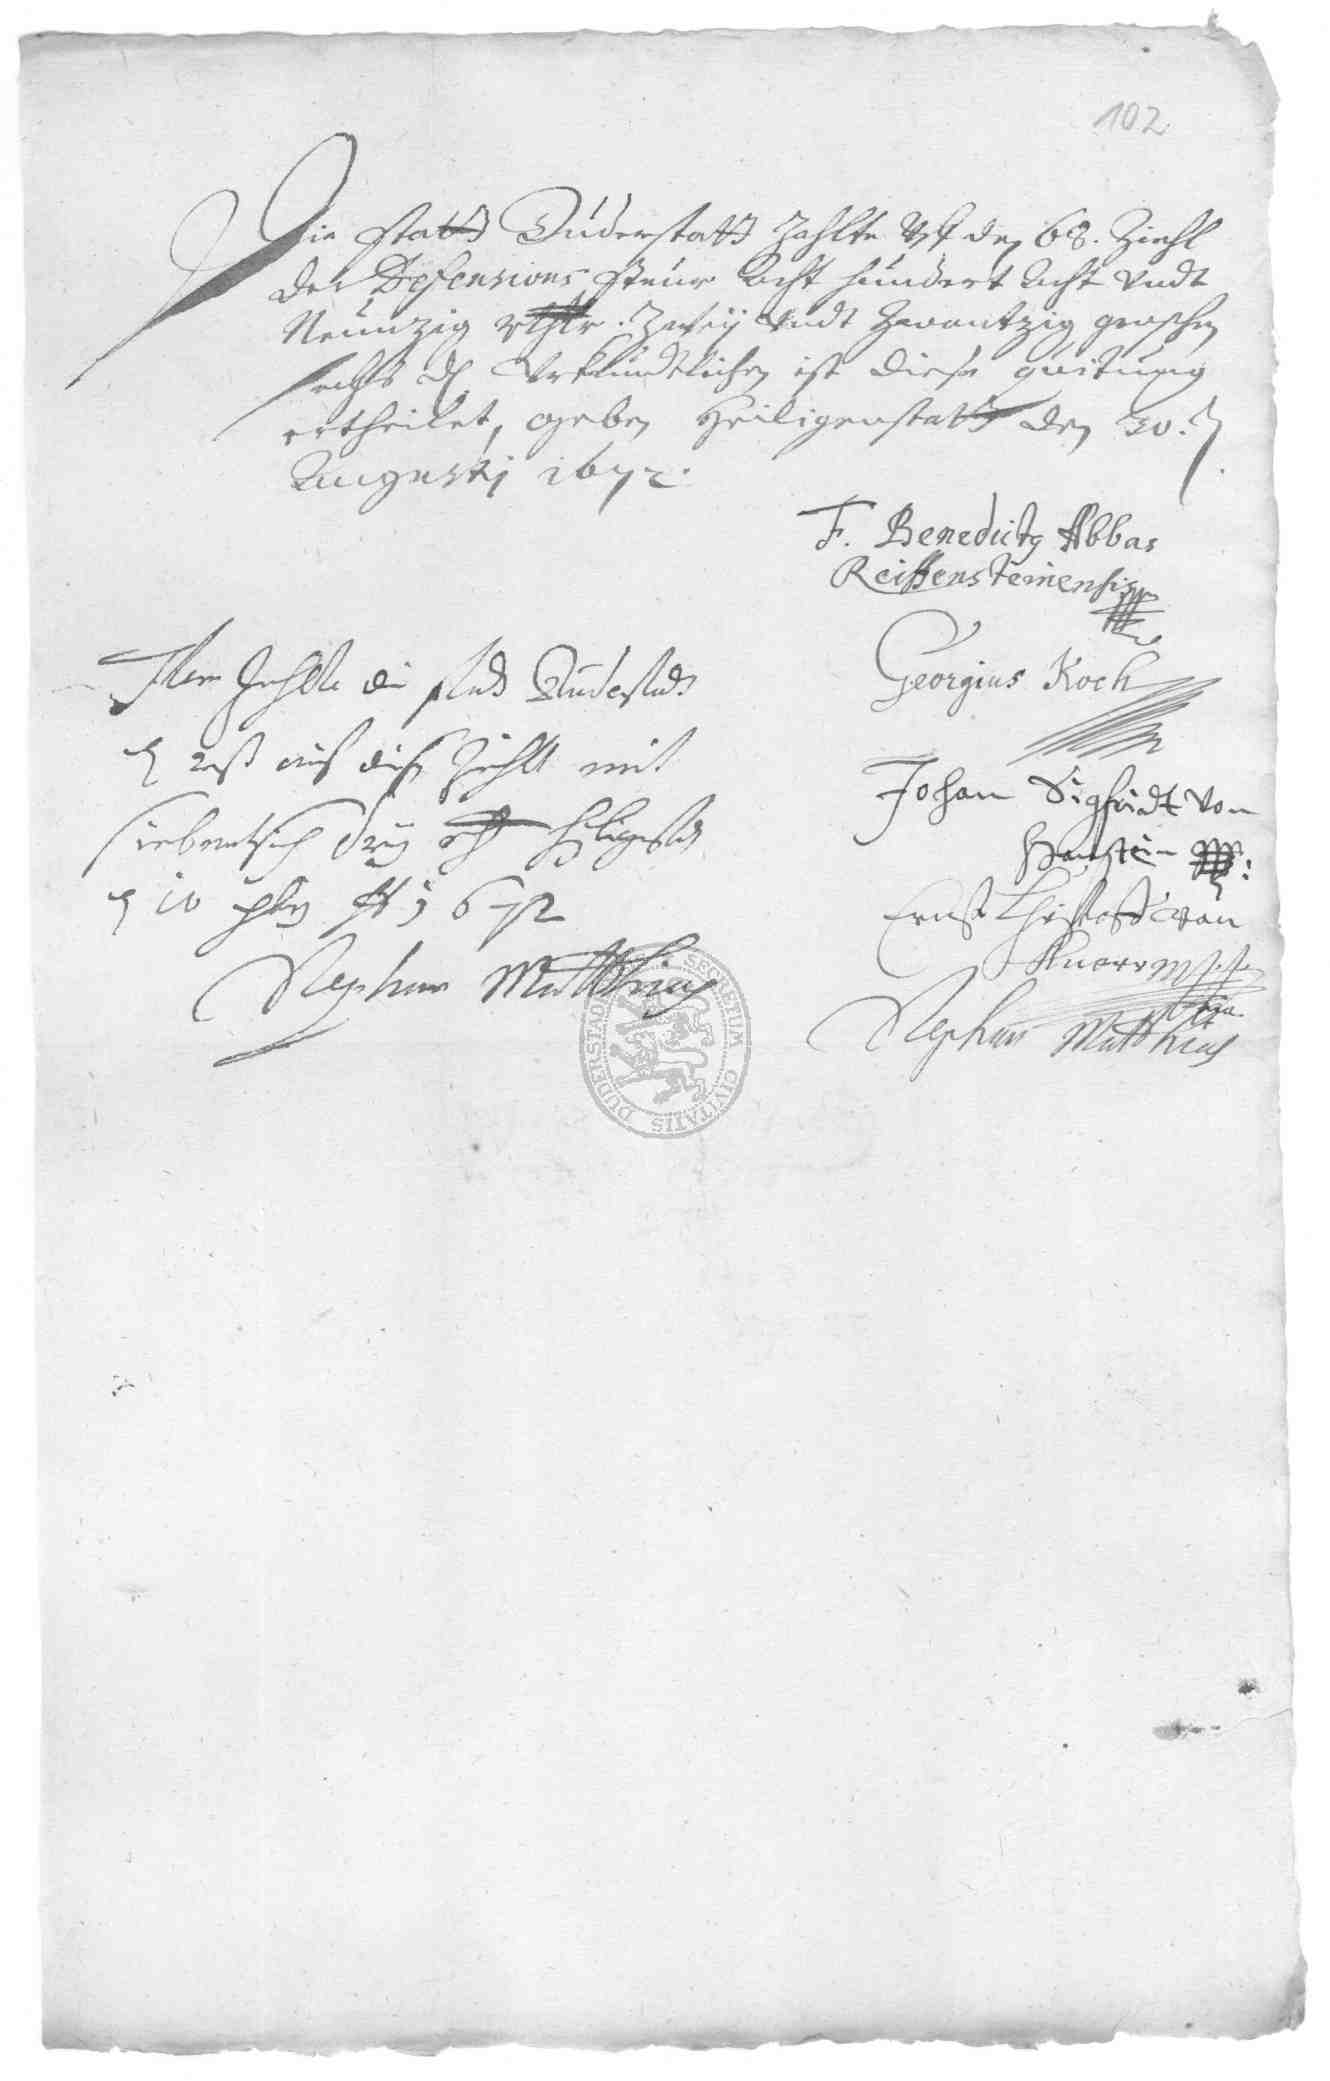 102
Die Statt Duderstatt Zahlte Vf den 68. Ziehl
der Defensions Steur Acht hundert Acht Vndt
Neunzig rthlr. Zweÿ Vndt Zwantzig groschen
sechs d Vrkundtlichen ist diese quitung
ertheilet, geben Heiligenstatt den 30.
Augusti 1672.
F. Benedictg Abbas
Reiffensteinensis
Georgius Koch
Johan Sigfridt von
Hanstein
Ernst Christoff von
Knorr mpp
Stephan Matthias
Item Zahlte die stadt Duderstadt
rest auf dies Ziehll mit
siebentzich dreÿ rth Heiligenstadt
10 1672
Stephan Matthias
SECRETUM CIVITATIS DUDERSTAD